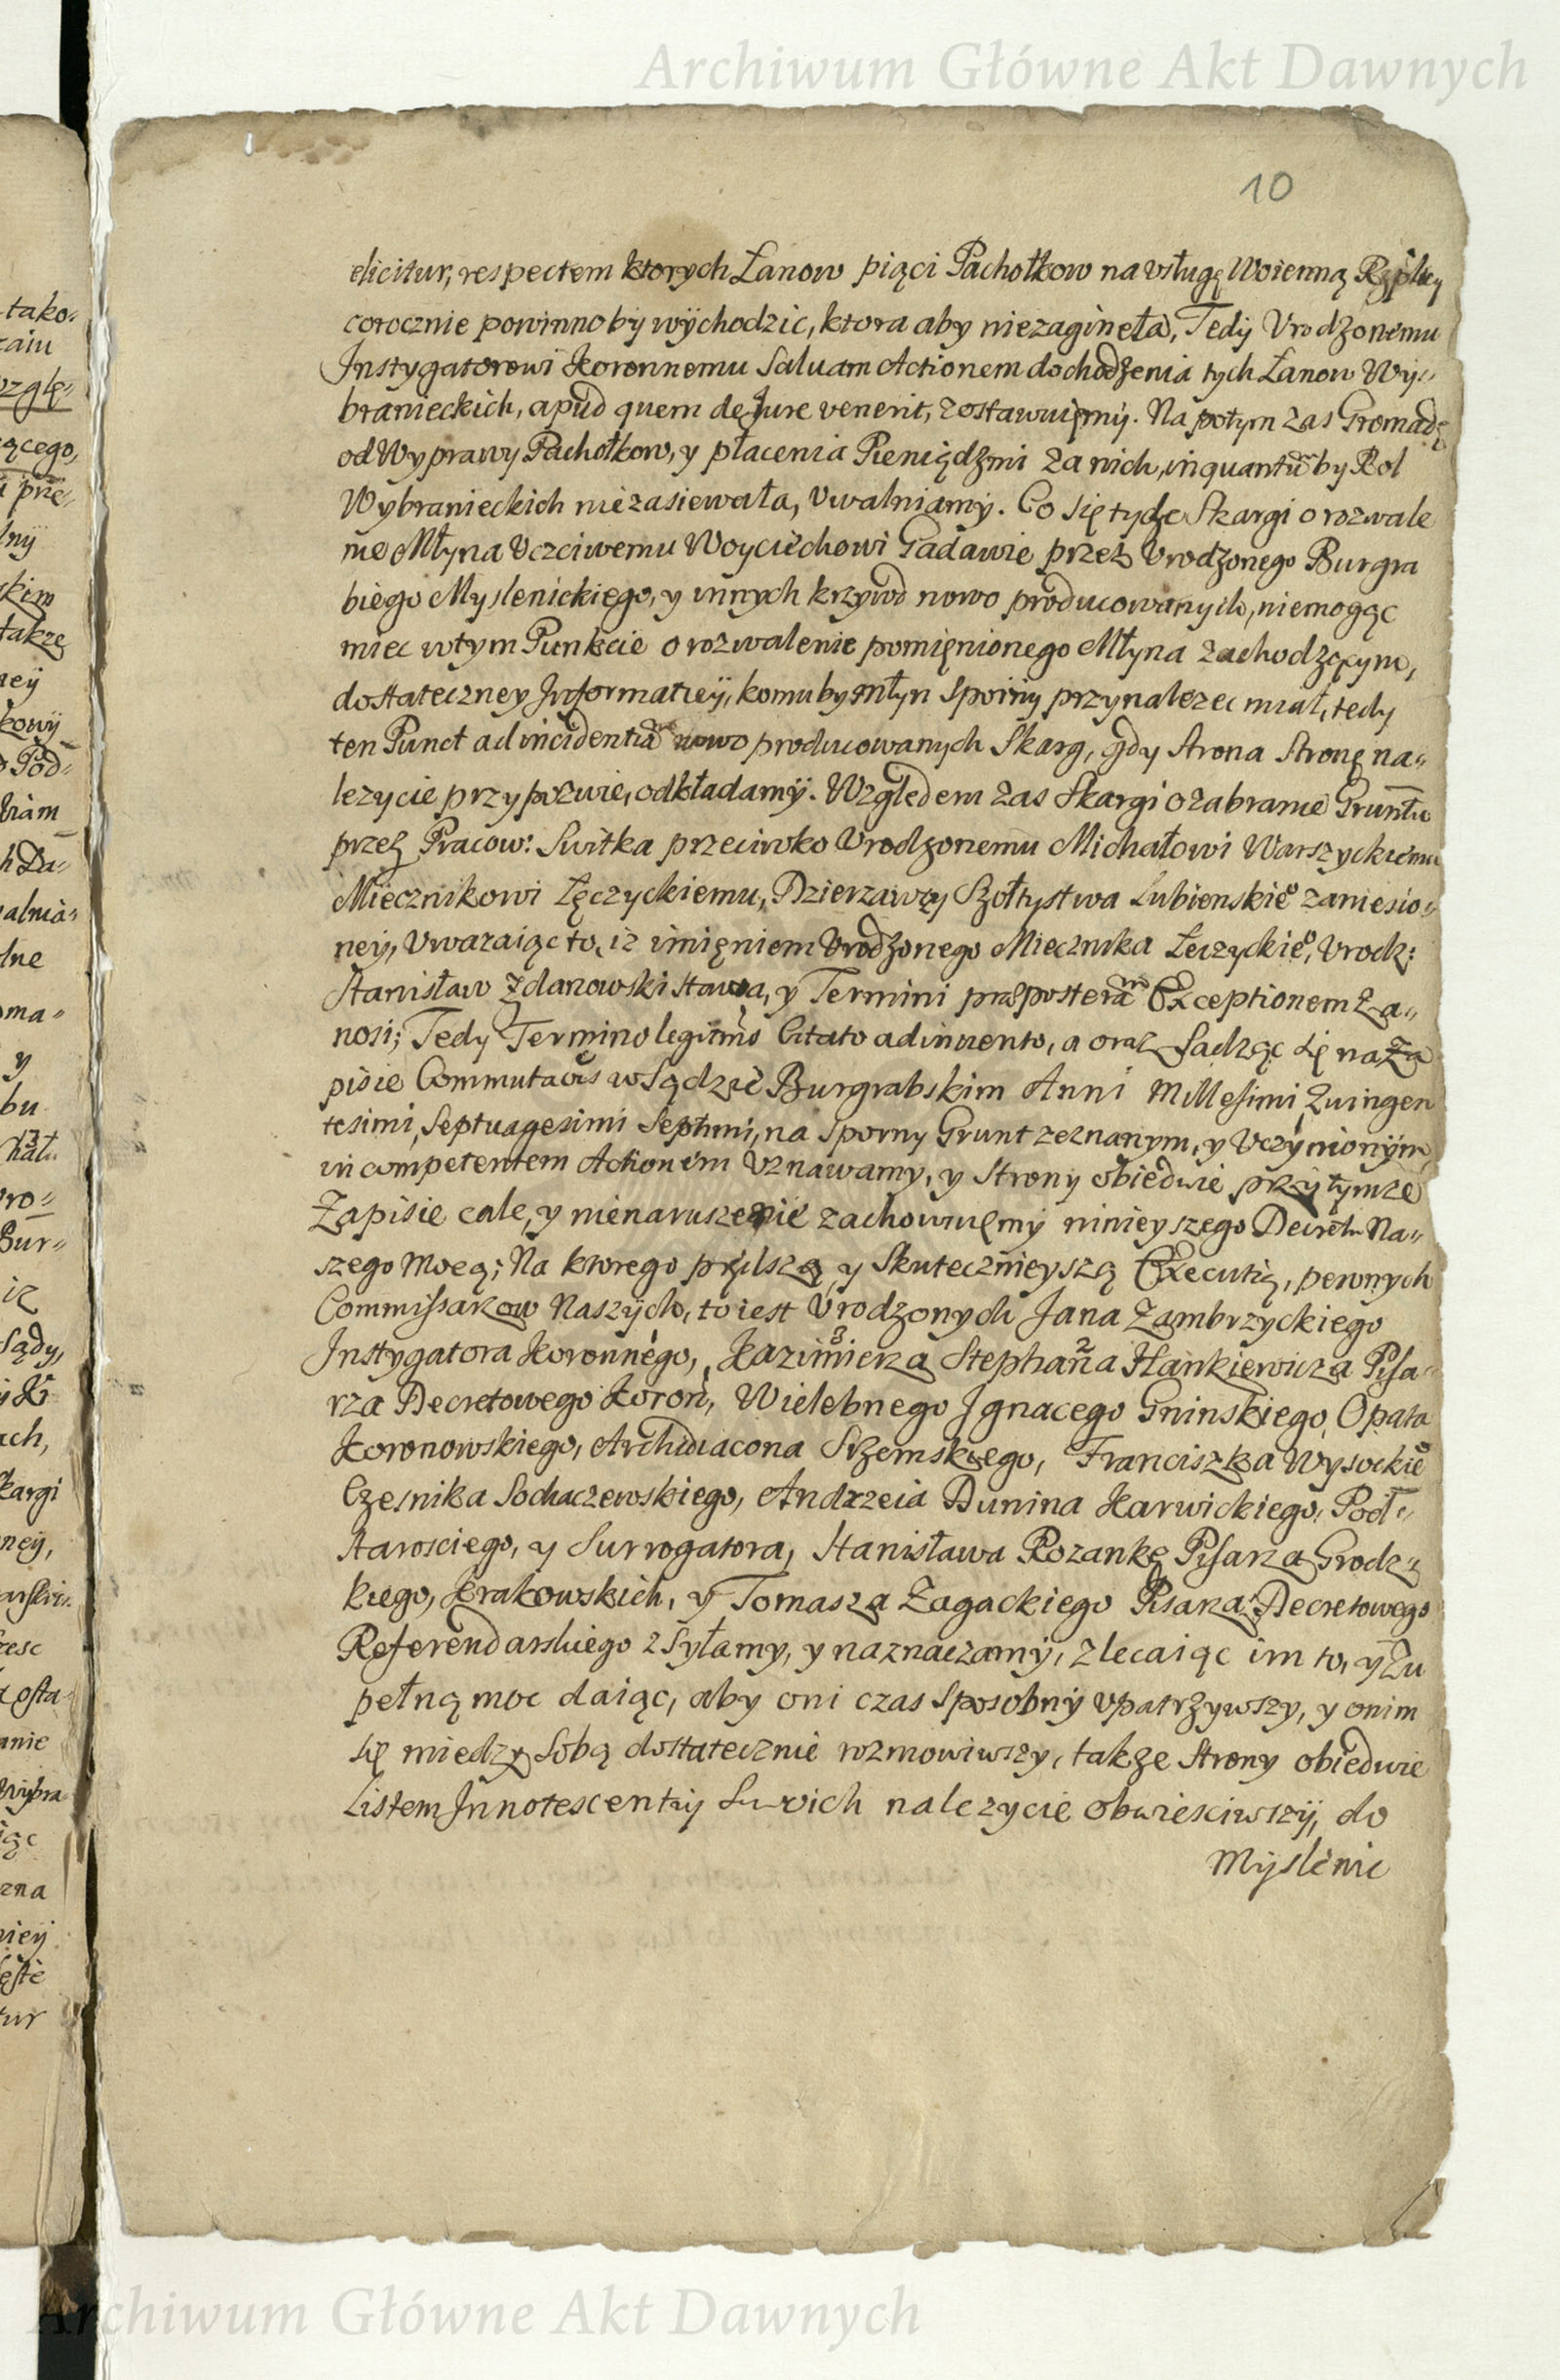 Archiwum Główne Akt Dawnych
10
elicitur, respectem ktorych Łanow piąci Pachołkow na vsługę Woienną Rzplitey
corocznie powinno by wÿchodzic, ktora aby niezagineła, Tedÿ Vrodzonemu
Instygatorowi Koronnemu Saluam Actionem dochodzenia tych Łanow Wy-
branieckich, apud quem de Jure venerit, zostawuięmÿ. Na potym zas Gromadę
od Wyprawy Pachołkow, y płacenia Pieniędzmi za nich, inquantum by Rol
Wybranieckich niezasiewała, Vwalniamÿ. Co się tycze Skargi o rozwale
nie Młyna Vczciwemu Woyciechowi Gadawie przez Vrodzonego Burgra
biego Myslenickięgo, y innych krzywd nowo producowanych, niemogąc
miec wtym Punkcie o rozwalenie pomięnionego Młyna zachodzącym,
dostateczney Informatieÿ, komu by młyn Sporny przynalezec miał, tedy
ten Punct ad incidentiam nowo producowanych Skarg, gdy Strona Stronę na-
lezycie przypozwie, odkładamÿ. Względem zas Skargi o zabranie Gruntu
przez Pracow: Switka przeciwko Vrodzonemu Michałowi Warszyckiemu
Miecznikowi Łęczyckiemu, Dzierzawcy Szołtystwa Lubienskieo zaniesio-
neÿ, Vwazaiąc to, iz imięniem Vrodzonego Miecznika Łeczyckieo, Vrodz:
Stanisław Zdanowski stawa, y Termini præposteram Exceptionem za-
nosi; Tedy Termino legitimo Citato adinuento, a oraz Sadząc się na Za
pisie Commutaois w Sądzie Burgrabskim Anni Millesimi Quingen
tesimi, Septuagesimi Septimi, na Sporny Grunt zeznanym, y Vczÿnionÿm,
incompetentem Actionem Vznawamy, y Strony obiedwie przÿ tymze
Zapisie cale, y nienaruszenie zachowuięmÿ ninieyszego Decretu Na-
szego mocą; Na ktorego prętszą, y Skutecznieyszą Executią, pewnych
Commissarzow Naszÿch, to iest Vrodzonych Jana Zambrzyckiego
Instygatora Koronnego, Kazimierza 3 Stephana 2 Hankiewicza Pisa-
rza Decretowego Koron, Wielebnego Jgnacego Gninskiego, Opata
Koronowskiego, Archidiacona Srzemskięgo, Franciszka Wysockieo
Czesnika Sochaczewskiego, Andrzeia Dunina Karwickiego, Pod-
starosciego, y Surrogatora, Stanisława Rozankę Pisarza Grodz-
kiego, Krakowskich, y Tomasza Zagackiego Pisarza Decretowego
Referendarskiego zsyłamy, y naznaczamÿ, zlecaiąc im to, y Zu
pełną moc daiąc, aby oni czas Sposobnÿ vpatrzywszy, y onim
się miedzy Sobą dostatecznie rozmowiwszy, takze Strony obiedwie
Listem Innotescentiÿ Swoich nalezycie obwiesciwszÿ, do
Mÿslenic
Archiwum Główne Akt Dawnych